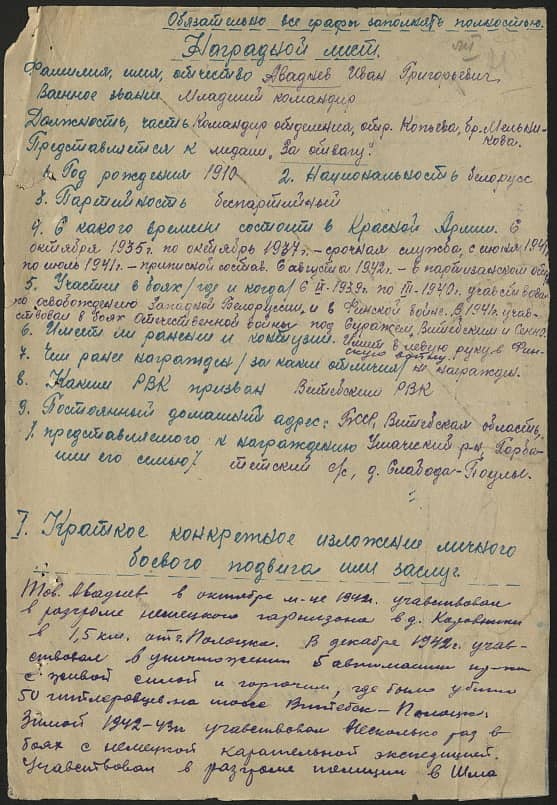 Обязательно все графы заполнять полностью.
Наградной лист.
Фамилия, имя, отчество Авадиев Иван Григорьевич
Военное звание Младший командир
Должность, часть Командир отделения, отр. Копьева, бр. Мельни-
кова.
Представляется к медали „За отвагу“.
1. Год рождения 1910 2. Национальность белорусс
3. Партийность беспартийный
4. С какого времени состоит в Красной Армии. С
октября 1935г. по октябрь 1937г. – срочная служба, с июня 1941
по июль 1941г. – приписной состав. С августа 1942г. – в партизанском отр.
5. Участие в боях /где и когда/ С IX-1939г. по III-1940г. учавствовал
по освобождению Западной Белоруссии, и в Финской войне. В 1941г. учав-
ствовал в боях Отечественной войны под Суражем, Витебским и Сенно.
6. Имеет ли ранения и контузии. Имеет в левую руку в Фин-
скую войну.
7. Чем ранее награжден /за какие отличия/ не награжден.
8. Каким РВК призван Витебским РВК
9. Постоянный домашний адрес: БССР, Витебская область,
/представляемого к награждению Ушачский р-н,
или его семью/ с/с, д. Слобода-Поулье.
I. Краткое конкретное изложение личного
боевого подвига или заслуг.
Тов. Авадиев в октябре м-це 1942г. учавствовал
в разгроме немецкого гарнизона в д.
в 1,5 км. от г. Полоцка. В декабре 1942г. учав-
ствовал в уничтожении 5 автомашин пр-ка
с живой силой и горючим, где было убито
50 гитлеровцев на шоссе Витебск – Полоцк.
Зимой 1942-43гг учавствовал несколько раз в
боях с немецкой карательной экспедицией.
Учавствовал в разгроме полиции в Шма